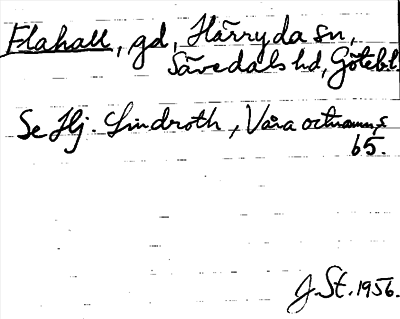 Flahall, gd, Härryda sn,
Sävedals hd, Götebl.
Se Hj. Lindroth, Våra ortnamn, s
65.
J. St. 1956.